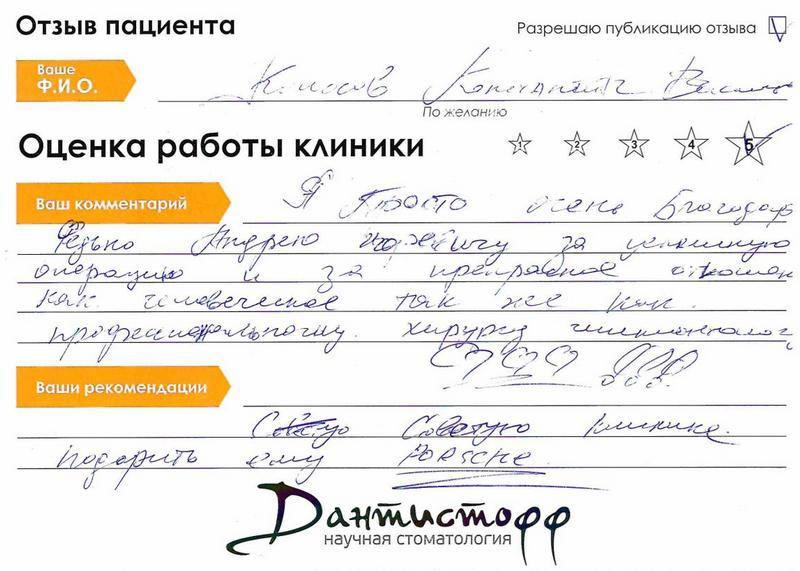 Отзыв пациента
Разрешаю публикацию отзыва
Ваше
Ф.И.О.
Константин
По желанию
Оценка работы клиники
1 2 3 4 5
Ваш комментарий
Я Просто очень благодар
Федько Андрею за успешную
операцию и за прекрасное отношен
как человеческое так же как
хирургу имплантолог
Ваши рекомендации
Советую клинике
подарить ему PORSCHE.
Дантистофф
научная стоматология